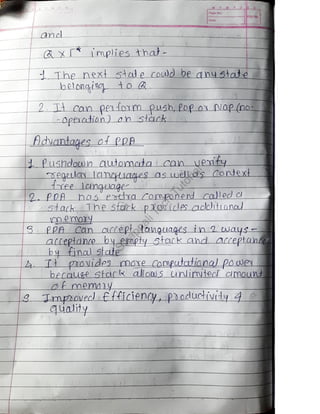 and
Q x Γ* implies that-
1. The next state could be any state
belonging to Q
2. It can perform push, pop or Nop (no-
-operation) on stack
Advantages of PDA
1. Pushdown automata can verify
regular languages as well as context
free language
2. PDA has extra component called a
stack. The stack provides additional
memory
3 PDA can accept languages in 2 ways -
acceptance by empty stack and acceptance
by final state
4. It provides more computational power
because stack allows unlimited amount
of memory
5 Improved Efficiency, productivity &
quality